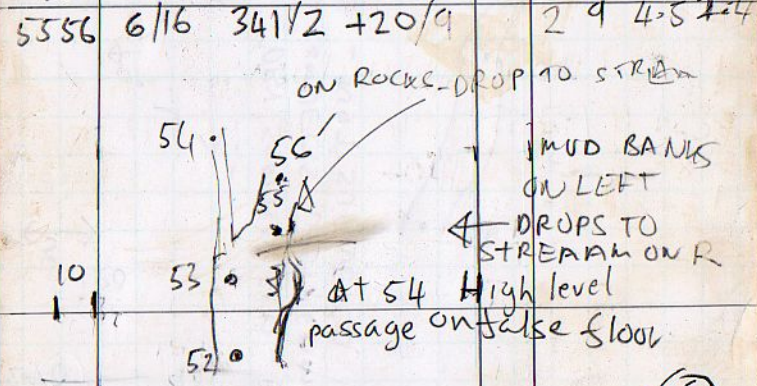 5556 6/16 341 1/2 +20/9 2 9 4.5
ON ROCKS - DROP TO STREAM
54
56
55
MUD BANKS
ON LEFT
DROPS TO
STREAAM ON R
10
53
At 54 High level
passage on false floor
52